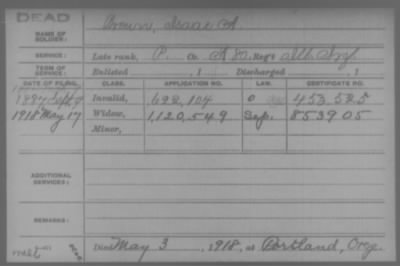 DEAD
NAME OF SOLDIER: Brown, Isaac A.
SERVICE: Late rank, P. Co. Reg't Inf.
TERM OF SERVICE: Enlisted , 1 Discharged , 1
DATE OF FILING. CLASS. APPLICATION NO. LAW. CERTIFICATE NO.
Sept Invalid, 692,104 453.525
1918 May 17 Widow, 1,120,549 Sep. 853905
Minor,
ADDITIONAL SERVICES:
REMARKS:
Died May 3 , 1918, at Portland, Oreg.